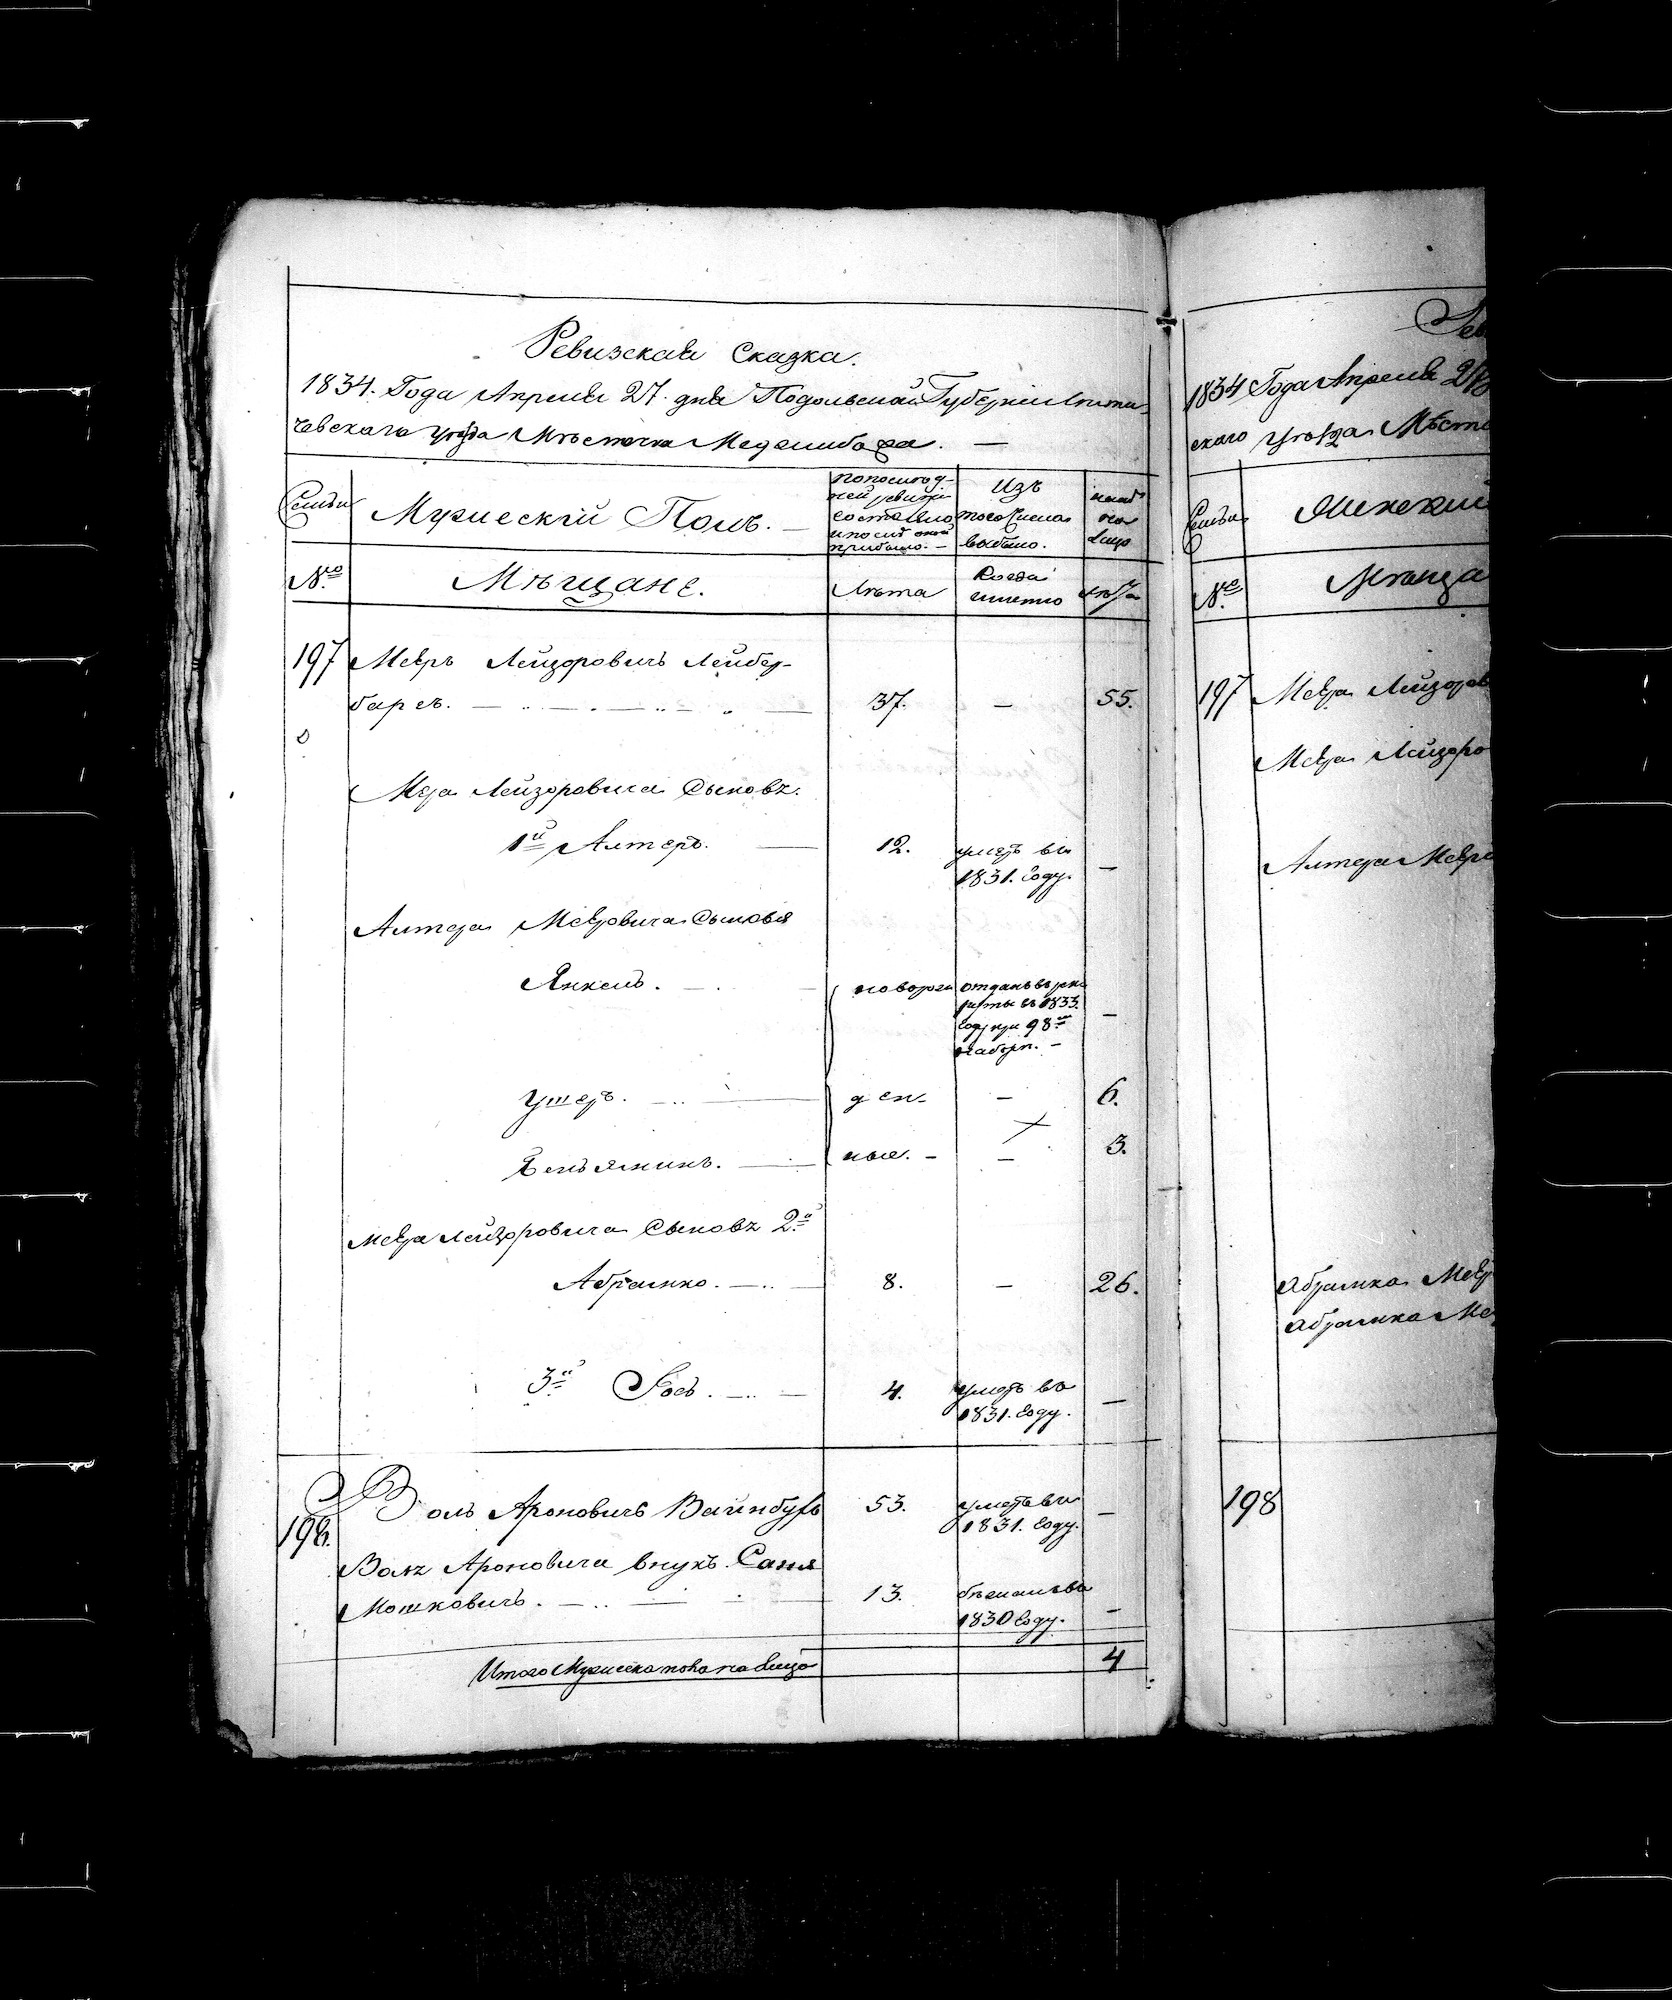 Ревизская Сказка.
1834. Года Апреля 27. дня Подольской Губернии Лити-
чевскаго уѣзда Мѣстечка Меджибожа. —
Семьи
Мужескій Полъ. —
по послѣд-
ней ревизіи
состояло
и послѣ оной
прибыло. —
Изъ
того числа
выбыло.
нынѣ
на
лицо
№
Мѣщане.
Лѣта
Когда
именно
лѣта
197 Меэръ Лейзоровичъ Лейбер-
баргъ. — 37. — 55.
Меэра Лейзоровича Сыновъ.
1й Алтеръ. — 12. умеръ въ
1831. году. —
Алтера Меэровича Сыновья
Янкель. — новорож отданъ въ рек
руты въ 1833.
году при 98м
наборѣ. — —
Ушеръ. — ден- — 6.
Беньяминъ. — ные. — — 3.
Меэра Лейзоровича Сыновъ 2й
Абрамко. — 8. — 26.
3й Іось. — 4. умеръ въ
1831. году. —
198. Волъ Ароновичъ Вайнбухъ 53. умеръ въ
1831. году. —
Волъ Ароновича внукъ Саня
Мошковичъ. — 13. бѣжалъ въ
1830 году. —
Итого Мужеска пола на лицо 4
1834 Года Апреля 27
скаго уѣзда Мѣсте
Семьи
Женский
№
Мѣща
197 Меэра Лейзоров
Меэра Лейзоро
Алтера Меэро
Абрамка Меэр
Абрамка Ме
198